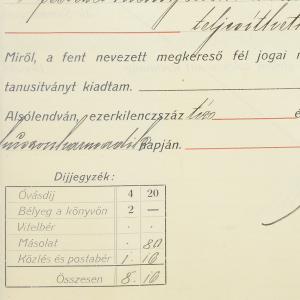 teljesíttetett
Miről, a fent nevezett megkereső fél jogai
tanusítványt kiadtam.
Alsólendván, ezerkilencszáz tíz é
huszonharmadik napján.
Díjjegyzék:
Óvásdíj 4 20
Bélyeg a könyvön 2 —
Vitelbér . .
Másolat . 80
Közlés és postabér 1. 10
Összesen 8. 10